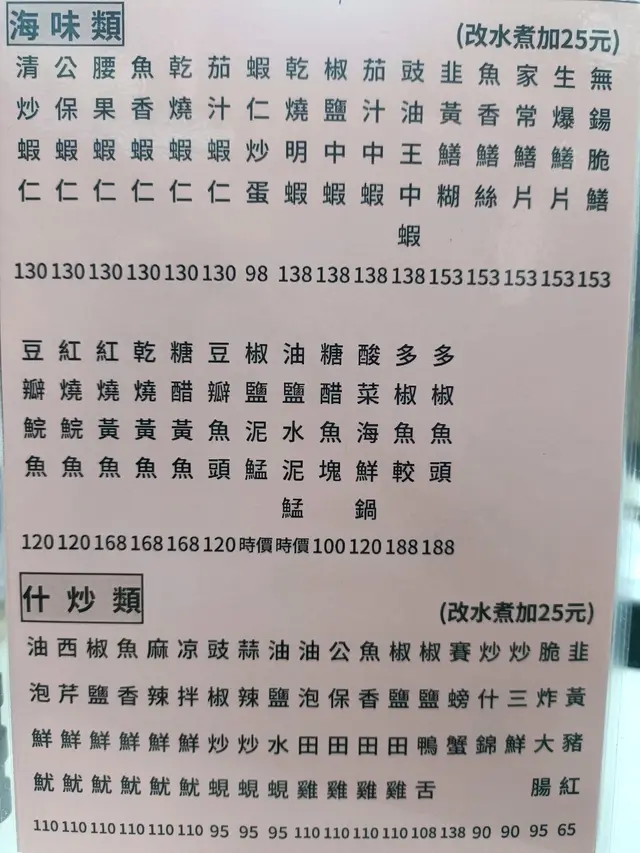 海味類
(改水煮加25元)
清炒蝦仁 130
公保蝦仁 130
腰果蝦仁 130
魚香蝦仁 130
乾燒蝦仁 130
茄汁蝦仁 130
蝦仁炒蛋 98
乾燒明蝦 138
椒鹽中蝦 138
茄汁中蝦 138
豉油王中蝦 138
韭黃鱔糊 153
魚香鱔絲 153
家常鱔片 153
生爆鱔片 153
無鍚脆鱔 153
豆瓣鯇魚 120
紅燒鯇魚 120
紅燒黃魚 168
乾燒黃魚 168
糖醋黃魚 168
豆瓣魚頭 120
椒鹽泥鯭 時價
油鹽水泥鯭 時價
糖醋魚塊 100
酸菜海鮮鍋 120
多椒魚較 188
多椒魚頭 188
什炒類
(改水煮加25元)
油泡鮮魷 110
西芹鮮魷 110
椒鹽鮮魷 110
魚香鮮魷 110
麻辣鮮魷 110
凉拌鮮魷 110
豉椒炒蜆 95
蒜辣炒蜆 95
油鹽水蜆 95
油泡田雞 110
公保田雞 110
魚香田雞 110
椒鹽田雞 110
椒鹽鴨舌 108
賽螃蟹 138
炒什錦 90
炒三鮮 90
脆炸大腸 95
韭黃豬紅 65